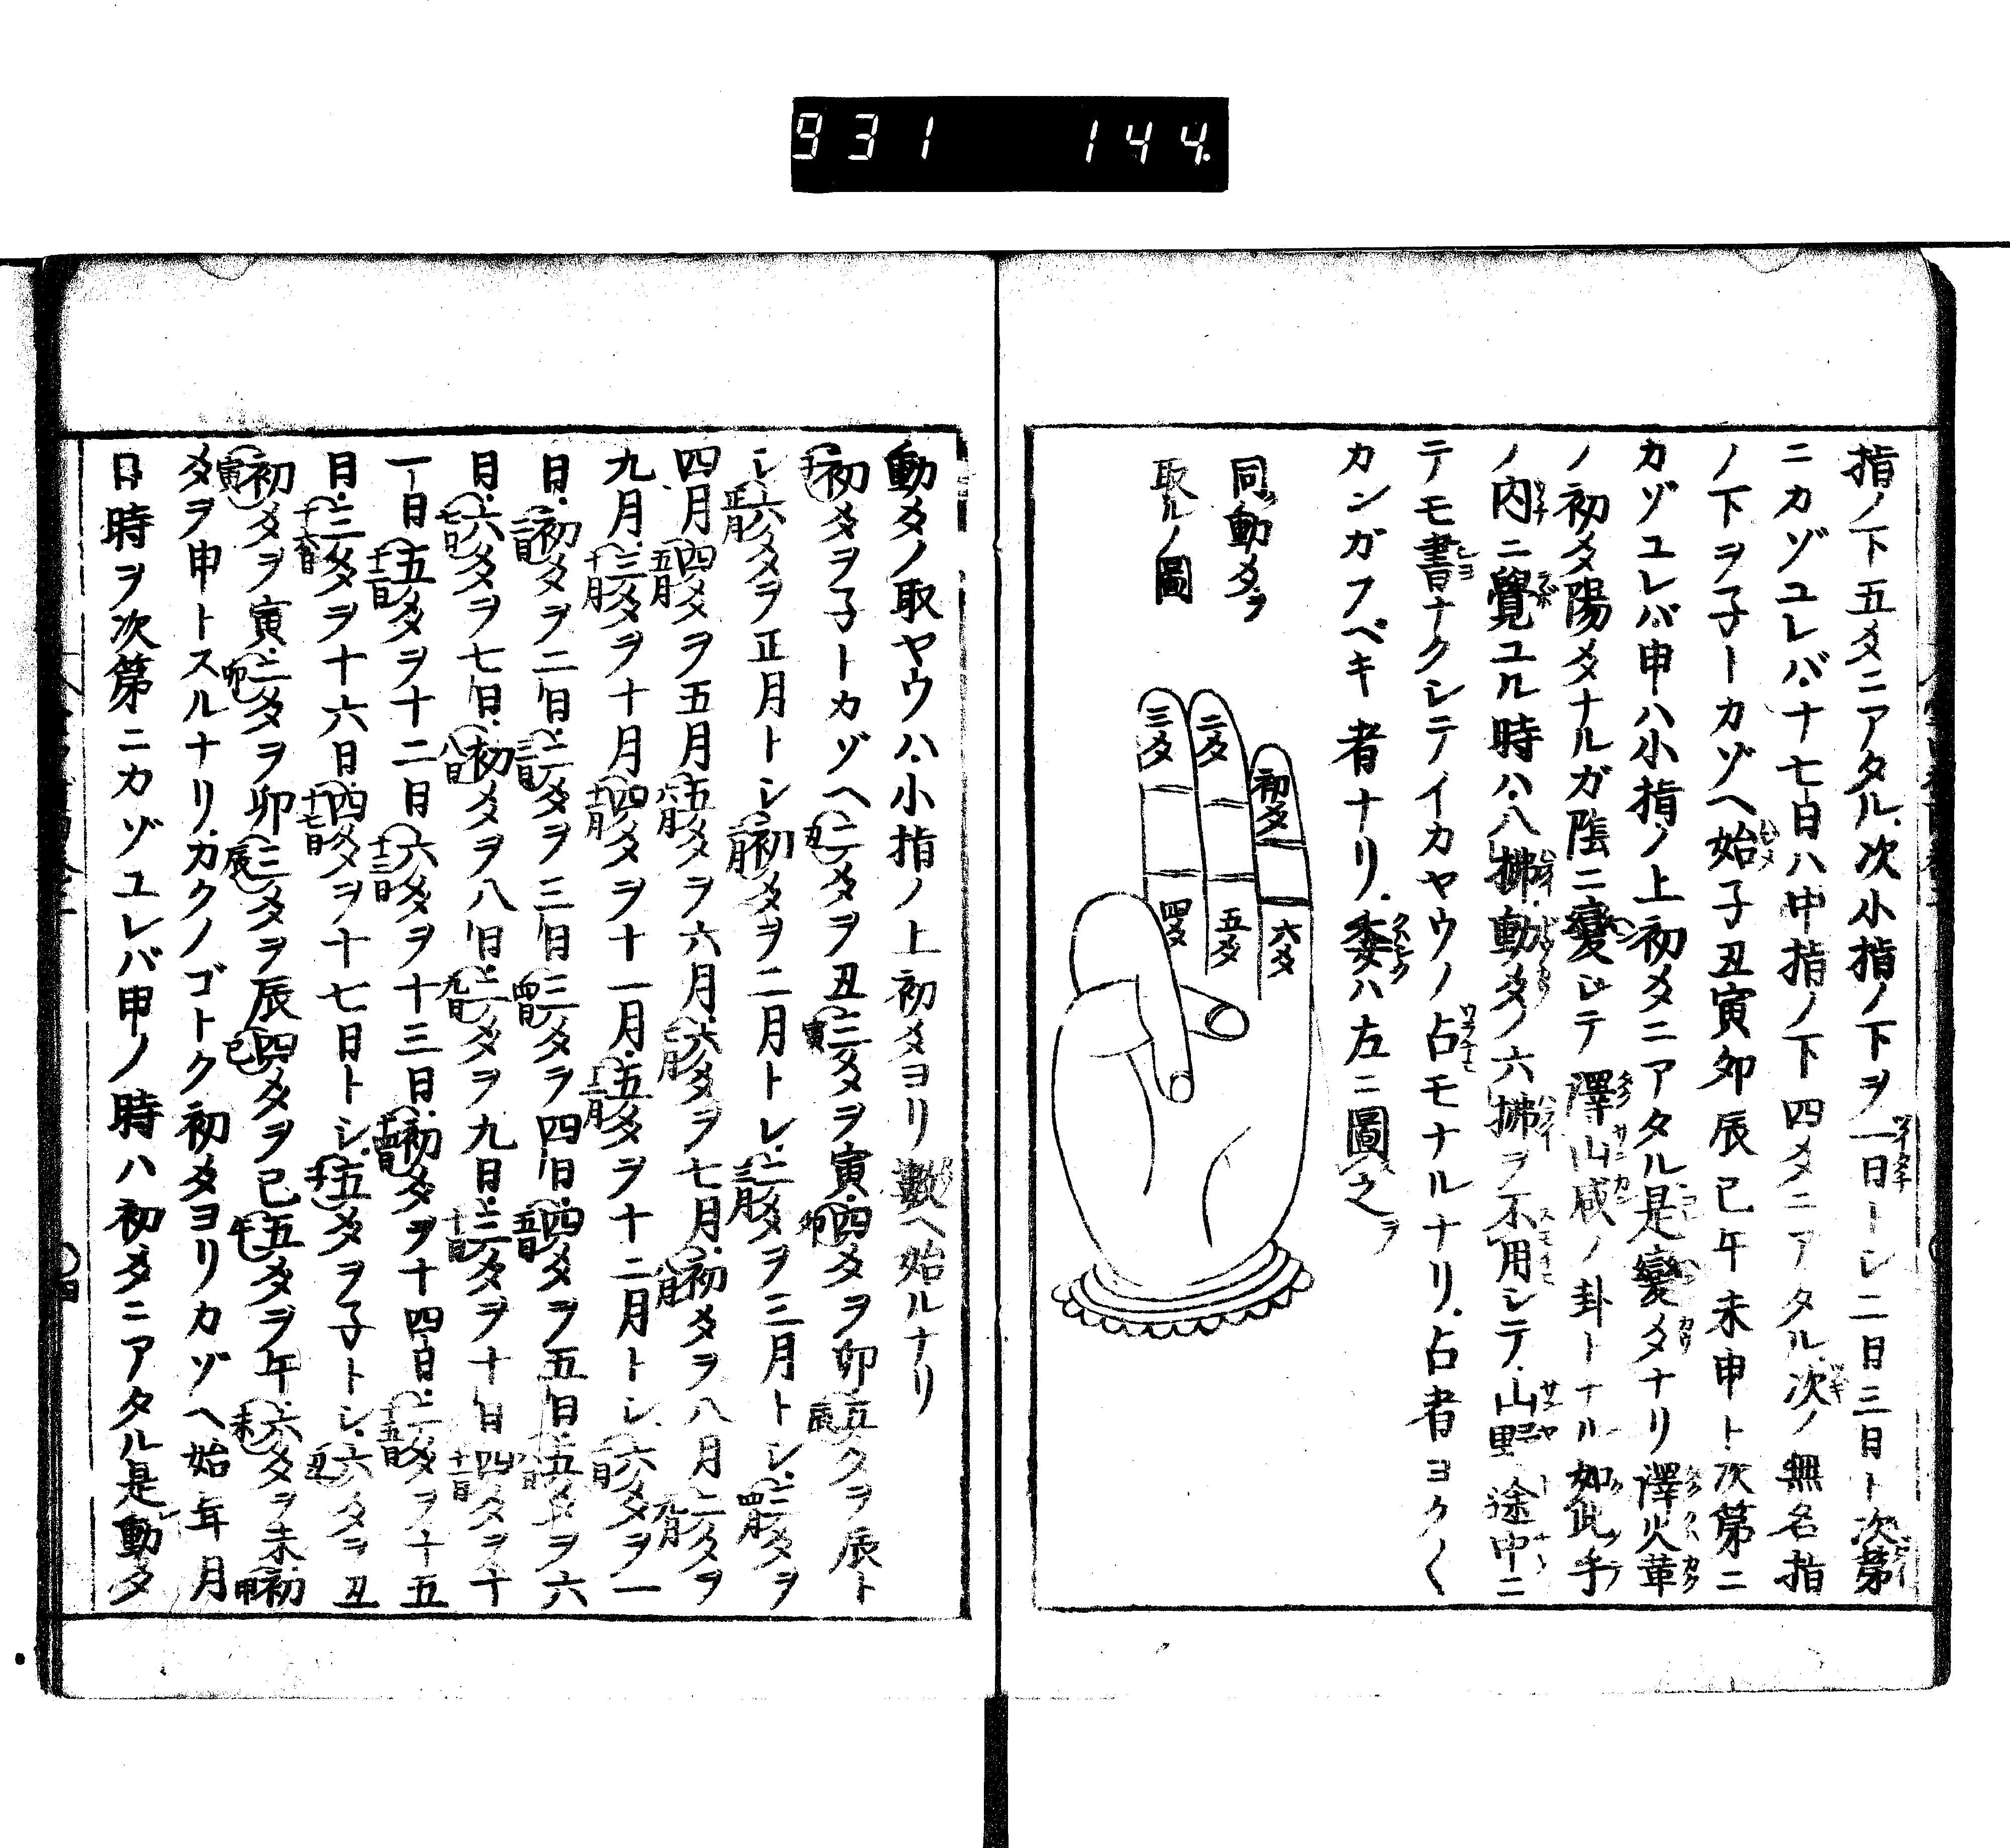 931 144.
指ノ下五メニアタル.次小指ノ下ヲ一日トシ二日三日ト次第
ニカゾユレバ.十七日ハ中指ノ下四メニアタル.次ノ無名指
ノ下ヲ子トカゾヘ始子丑寅卯辰巳午未申ト次第ニ
カゾユレバ.申ハ小指ノ上初メニアタル是變メナリ澤火革
ノ初メ陽メナルガ陰ニ變ジテ澤山咸ノ卦トナル如此手
ノ内ニ覺ユル時ハ.八拂.動メノ六拂ヲ不用シテ.山野途中ニ
テモ書ナクシテイカヤウノ占モナルナリ.占者ヨク〱
カンガフベキ者ナリ.委ハ左ニ圖之ヲ
同動メヲ
取ルノ圖
初メ
二メ
三メ
四メ
五メ
六メ
動メノ取ヤウハ.小指ノ上初メヨリ數ヘ始ルナリ
初メヲ子トカゾヘ二メヲ丑三メヲ寅.四メヲ卯五メヲ辰ト
シ六メヲ正月トシ初メヲ二月トシ.二メヲ三月トシ.三メヲ
四月四メヲ五月五メヲ六月.六メヲ七月.初メヲ八月二メヲ
九月.三メヲ十月四メヲ十一月.五メヲ十二月トシ六メヲ一
日.初メヲ二日.二メヲ三日三メヲ四日.四メヲ五日.五メヲ六
日.六メヲ七日.初メヲ八日.二メヲ九日.三メヲ十日四メヲ十
一日五メヲ十二日六メヲ十三日.初メヲ十四日.二メヲ十五
日.三メヲ十六日.四メヲ十七日トシ.五メヲ子トシ.六メヲ丑
初メヲ寅.二メヲ卯三メヲ辰四メヲ巳五メヲ午.六メヲ未.初
メヲ申トスルナリ.カクノゴトク初メヨリカゾヘ始年月
日時ヲ次第ニカゾユレバ申ノ時ハ初メニアタル是動メ